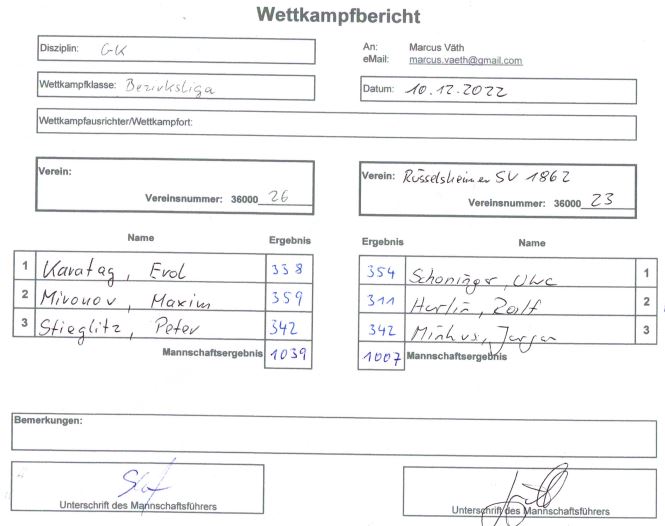 Wettkampfbericht
Disziplin: GK
An: Marcus Väth
eMail: marcus.vaeth@gmail.com
Wettkampfklasse: Bezirksliga
Datum: 10.12.2022
Wettkampfausrichter/Wettkampfort:
Verein:
Vereinsnummer: 36000 26
Verein: Rüsselsheimer SV 1862
Vereinsnummer: 36000 23
Name Ergebnis
1 Karatag, Erol 338
2 Mironov, Maxim 359
3 Stieglitz, Peter 342
Mannschaftsergebnis 1039
Ergebnis Name
354 Schoninger, Uwe 1
311 Rolf 2
342 3
1007 Mannschaftsergebnis
Bemerkungen:
Unterschrift des Mannschaftsführers
Unterschrift des Mannschaftsführers